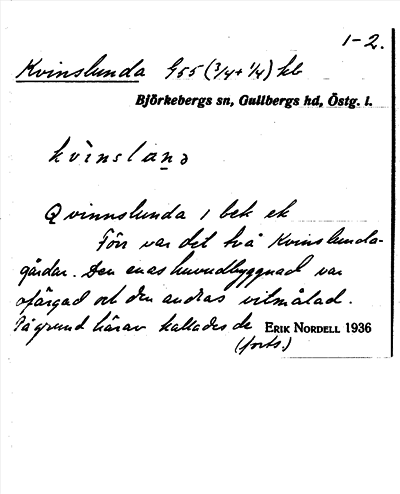 1-2.
Kvinslunda 955 (3/4+1/4) hb
Björkebergs sn, Gullbergs hd, Östg. l.
kvinslana
Qvinnslunda 1 bek ek
Förr var det två Kvinslunda-
gårdar. Den enas huvudbyggnad var
ofärgad och den andras vitmålad.
På grund härav kallades de ERIK NORDELL 1936
(forts.)